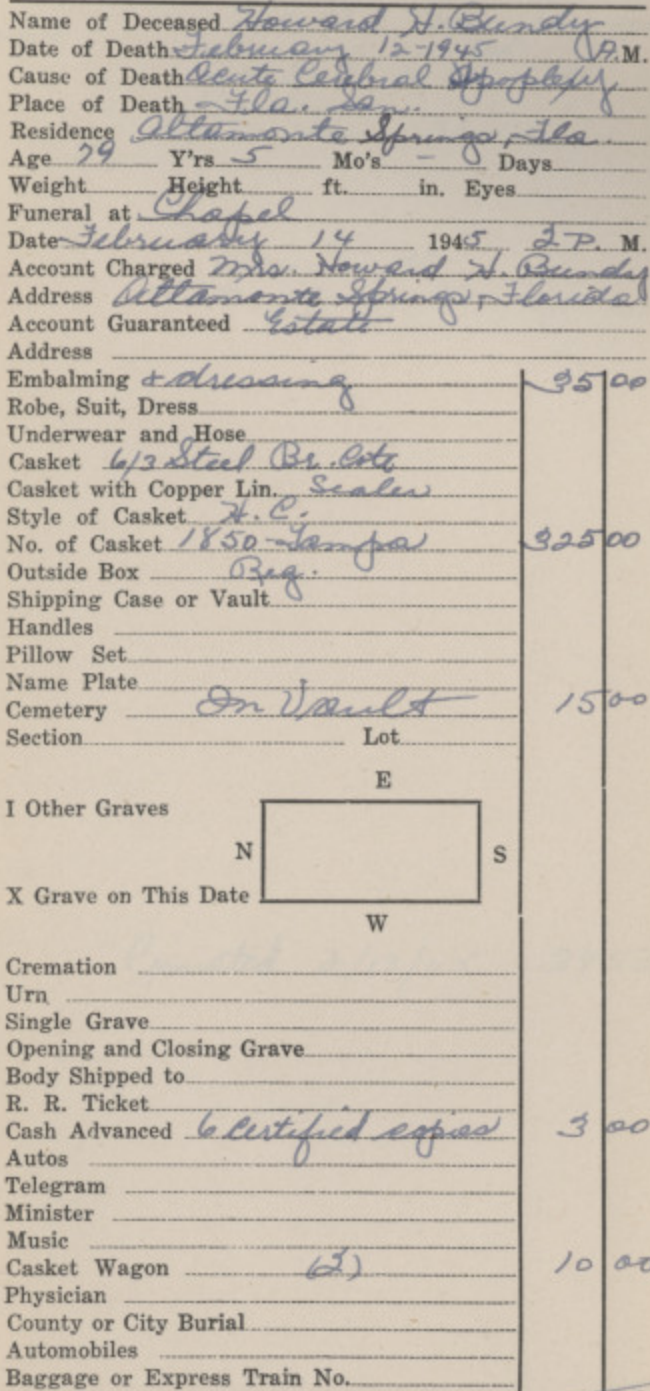 Name of Deceased Howard H. Bundy
Date of Death February 12-1945 P.M.
Cause of Death Acute Cerebral Apoplexy
Place of Death Fla. San.
Residence Altamonte Springs, Fla.
Age 79 Y'rs 5 Mo's - Days
Weight Height ft. in. Eyes
Funeral at Chapel
Date February 14 1945 2 P. M.
Account Charged Mrs. Howard H. Bundy
Address Altamonte Springs, Florida
Account Guaranteed Estate
Address
Embalming & dressing 35 00
Robe, Suit, Dress
Underwear and Hose
Casket 6/3 Steel Br.
Casket with Copper Lin. Sealer
Style of Casket H.C.
No. of Casket 1850-Tampa 325 00
Outside Box Reg.
Shipping Case or Vault
Handles
Pillow Set
Name Plate
Cemetery In Vault 15 00
Section Lot
E
I Other Graves
N S
X Grave on This Date
W
Cremation
Urn
Single Grave
Opening and Closing Grave
Body Shipped to
R. R. Ticket
Cash Advanced 6 certified copies 3 00
Autos
Telegram
Minister
Music
Casket Wagon (2) 10 00
Physician
County or City Burial
Automobiles
Baggage or Express Train No.